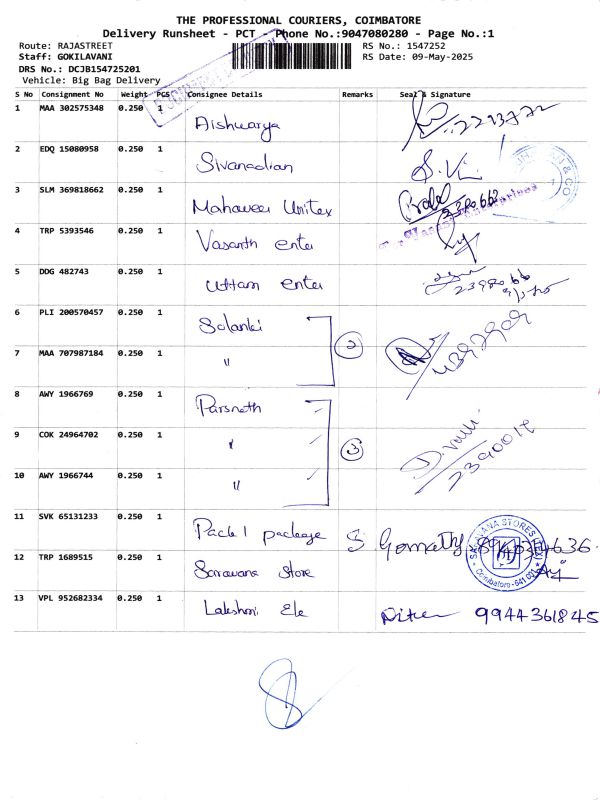 THE PROFESSIONAL COURIERS, COIMBATORE
Delivery Runsheet - PCT - Phone No.:9047080280 - Page No.:1
Route: RAJASTREET RS No.: 1547252
Staff: GOKILAVANI RS Date: 09-May-2025
DRS No.: DCJB154725201
Vehicle: Big Bag Delivery
S No Consignment No Weight PCS Consignee Details Remarks Seal & Signature
1 MAA 302575348 0.250 1 Aishwarya
2 EDQ 15080958 0.250 1 Sivanadian S. Vi
3 SLM 369818662 0.250 1 Mahaveer Unitex
4 TRP 5393546 0.250 1 Vasanth enter
5 DDG 482743 0.250 1 Uttam enter
6 PLI 200570457 0.250 1 Solanki
7 MAA 707987184 0.250 1 " 2
8 AWY 1966769 0.250 1 Parsnath
9 COK 24964702 0.250 1 " 3 2390017
10 AWY 1966744 0.250 1 "
11 SVK 65131233 0.250 1 Pack 1 package S Gomathy
12 TRP 1689515 0.250 1 Saravana Store
SARAVANA STORES
Coimbatore - 641 001
13 VPL 952682334 0.250 1 Lakshmi Ele 9944361845